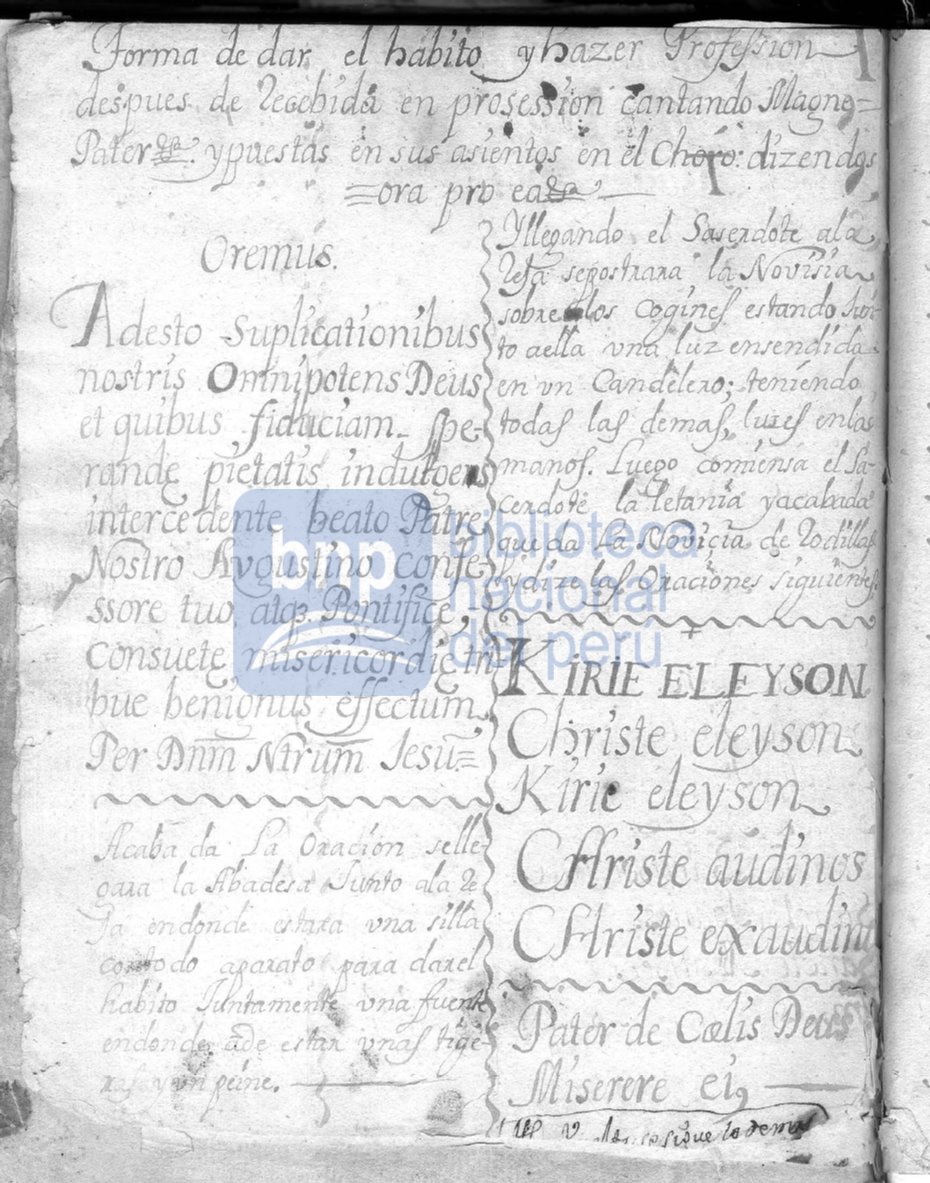 Forma de dar el habito y hazer Profession
despues de Recebida en prosession cantando Magne=
Pater &a. y puestas en sus asientos en el Choro: dizen dos
=ora pro ea &a
Oremus.
Adesto Suplicationibus
nostris Omnipotens Deus
et quibus fiduciam spe-
rande pietatis indulgens
intercedente beato Patre
Nostro Avgustino confe-
ssore tuo atq3 Pontifice,
consuete misericordie tri
bue benignus effectum
Per Dnm Ntrum Iesu=
Acaba da La Oracion selle-
gara la Abadesa Junto ala Re
Ja endonde estara vna silla
contodo aparato para darel
habito Juntamente vna fuente
endonde ade estar vnas tige-
ras y vn peine.
Yllegando el Saserdote ala
Reja sepostrara la Novisia
sobre los cogines estando Jun-
to aella vna luz ensendida
en vn Candelero; teniendo
todas las demas, luzes enlas
manos. Luego comiensa el Sa-
cerdote la letania yacabada
queda La Novicia de Rodillas
y dize las Oraciones siguientes
KIRIE ELEYSON
Christe eleyson
Kirie eleyson
CHriste audinos
CHriste exaudin
Pater de Cœlis Deus
Miserere ei,
sigue lo demas
biblioteca
nacional
del perú
bnp